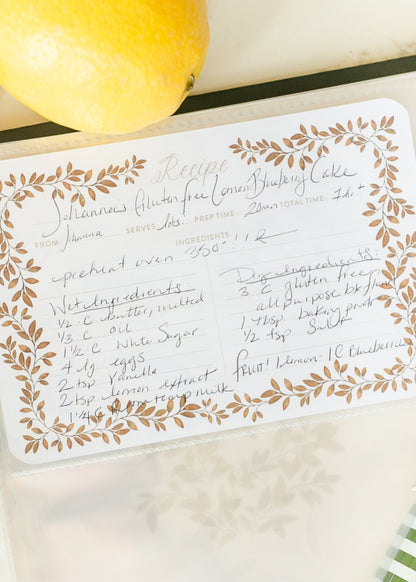 Recipe
Johanna's Gluten free Lemon Blueberry Cake
FROM: Jhonna SERVES: lots. PREP TIME: 20min TOTAL TIME: 1 hr +
INGREDIENTS
preheat oven 350°
Wet Ingredients
1/2 C butter, melted
1/3 C oil
1 1/2 C White Sugar
4 lg eggs
2 tsp Vanilla
2 tsp lemon extract
1 1/4 C milk
Dry Ingredients
3 C gluten free
all purpose
1 Tbsp. baking powdr
1/2 tsp Salt
fruit! 1 lemon. 1 C Blueberries